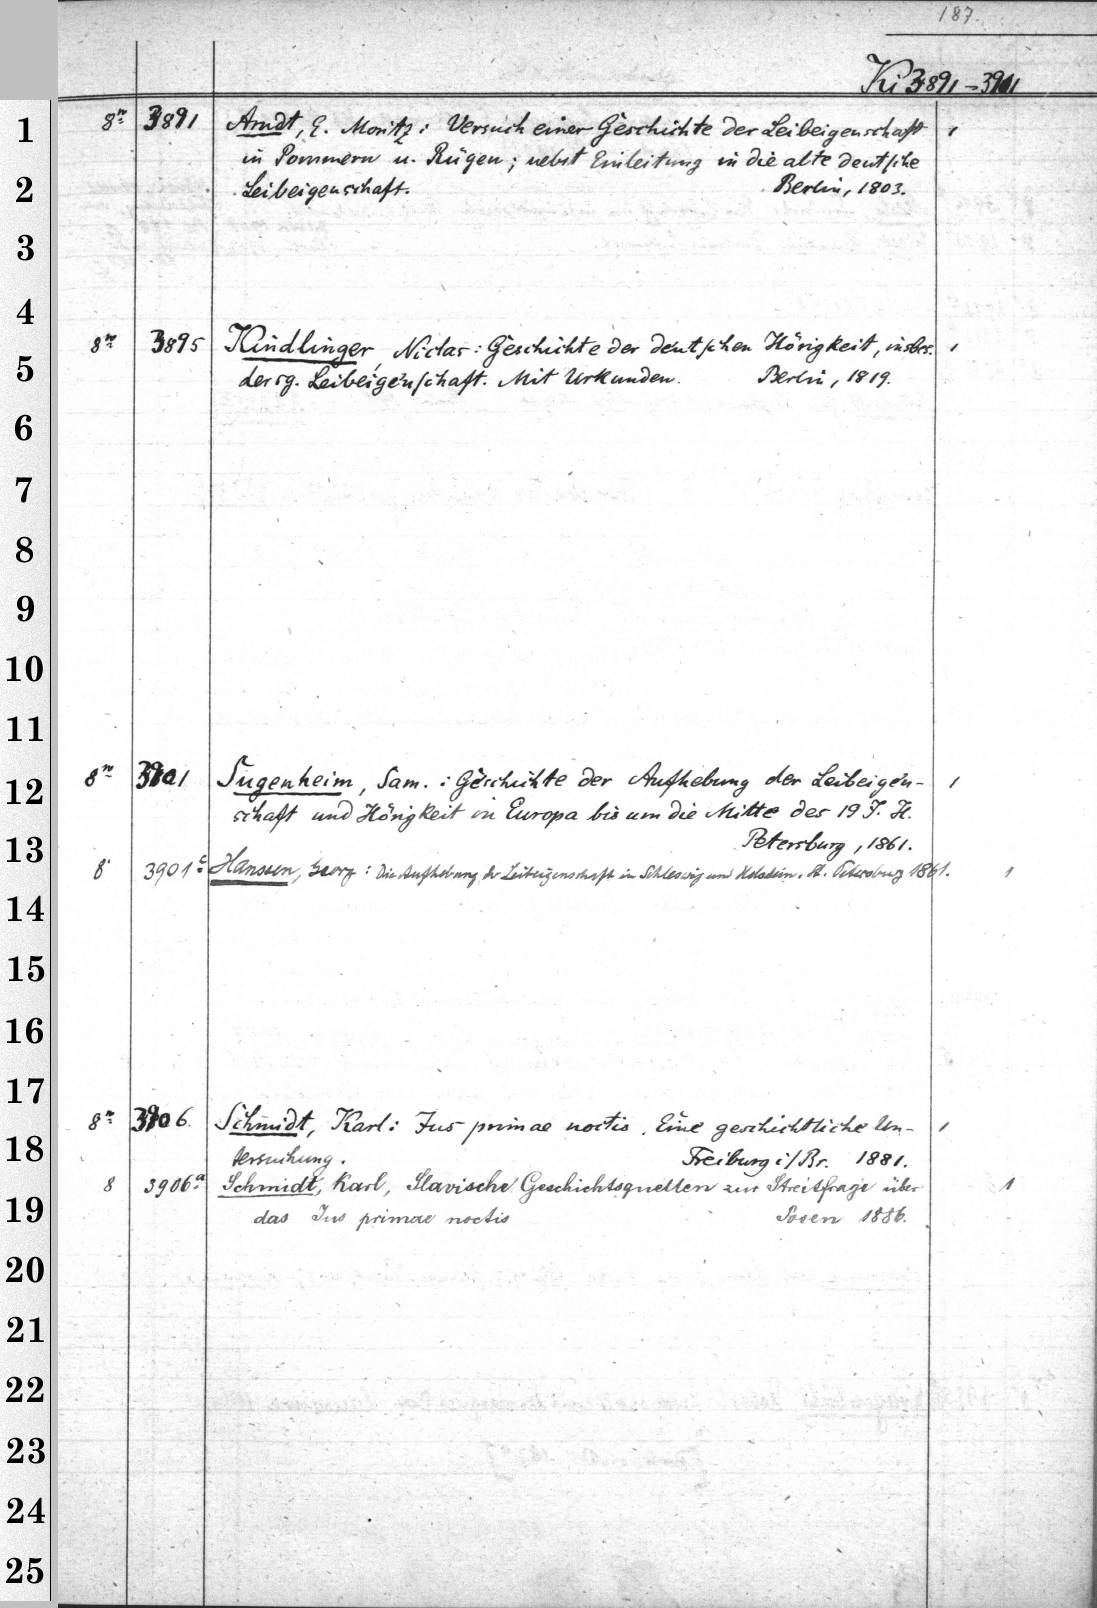 187.
Ki 3891-3901
1
8º 3891 Arndt, E. Moritz: Versuch einer Geschichte der Leibeigenschaft 1
in Pommern u. Rügen; nebst Einleitung in die alte deutsche
2
Leibeigenschaft. Berlin, 1803.
3
4
8º 3895 Kindlinger, Niclas: Geschichte der deutschen Hörigkeit, insbes. 1
5
der sg. Leibeigenschaft. Mit Urkunden. Berlin, 1819.
6
7
8
9
10
11
8º 3901 Sugenheim, Sam.: Geschichte der Aufhebung der Leibeigen- 1
12
schaft und Hörigkeit in Europa bis um die Mitte des 19 J. H.
Petersburg, 1861.
13
8º 3901c Hanssen, Georg: Die Aufhebung der Leibeigenschaft in Schleswig und Holstein. St. Petersburg 1861. 1
14
15
16
17
8º 3906. Schmidt, Karl: Jus primae noctis. Eine geschichtliche Un- 1
18
tersuchung. Freiburg i/Br. 1881.
8 3906a Schmidt, Karl, Slavische Geschichtsquellen zur Streitfrage über 1
19
das Jus primae noctis Posen 1886.
20
21
22
23
24
25